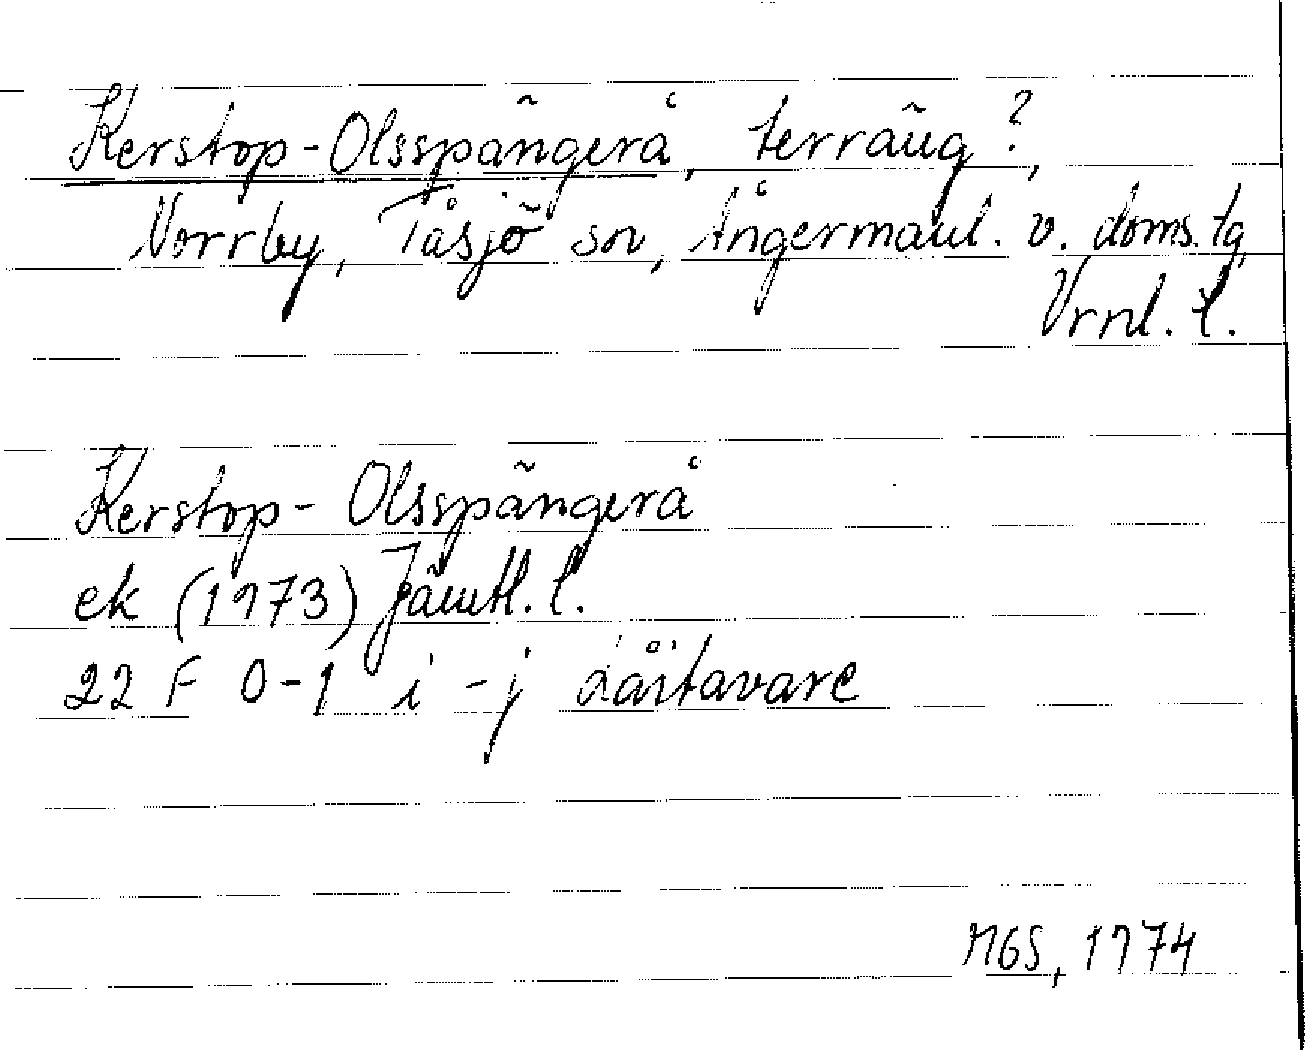 Kerstop-Olsspängerå, terräng?,
Norrby, Tåsjö sn, Ångermanl. v. doms. tg,
Vrnl. l.
Kerstop- Olsspängerå
ek (1973) Jämtl. l.
22 F 0-1 i - j
MGS, 1974